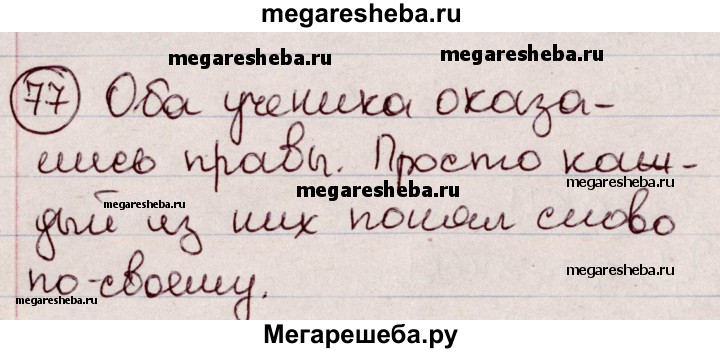 megaresheba.ru
megaresheba.ru
77 Оба ученика оказа-
лись правы. Просто каж-
megaresheba.ru
megaresheba.ru
дый из них понял слово
megaresheba.ru
по-своему.
megaresheba.ru
megaresheba.ru
Мегарешеба.ру